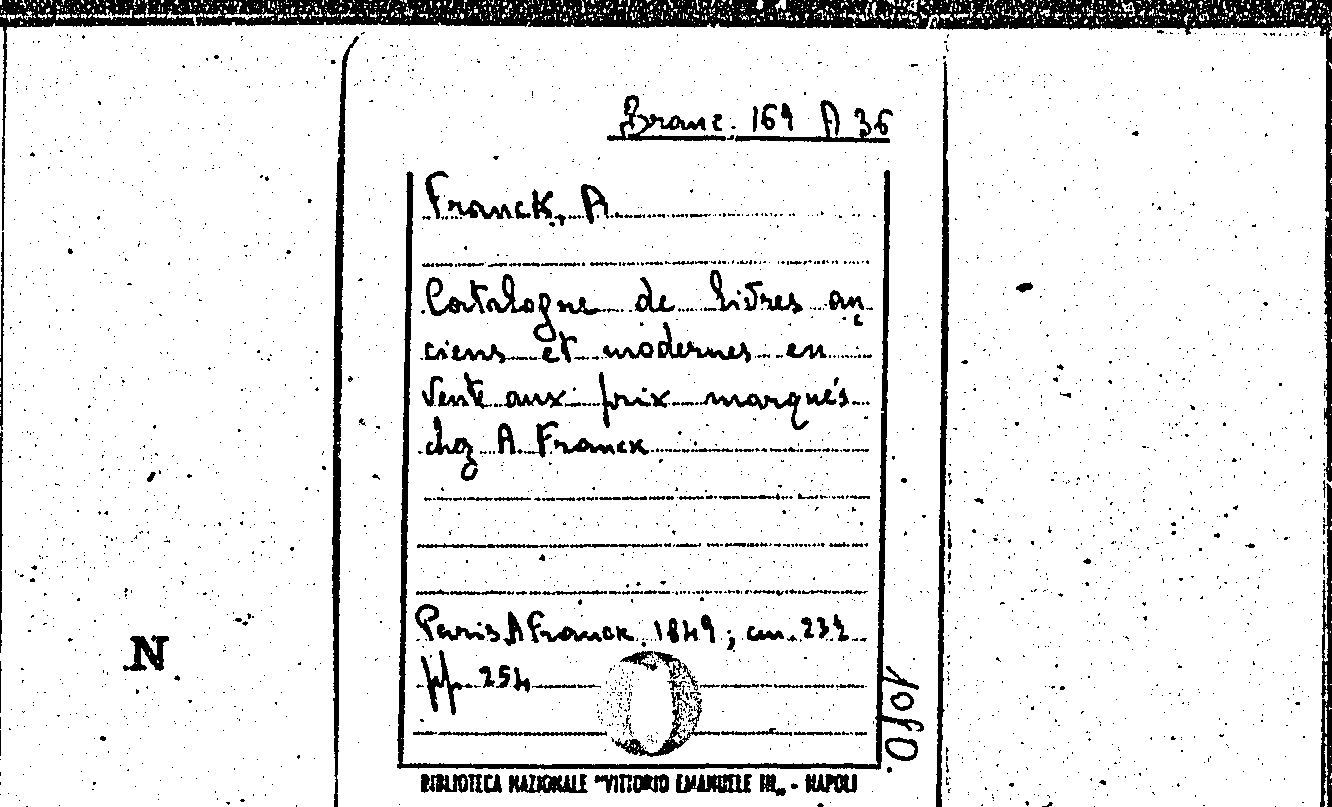 Branc. 169 A 36
Franck, A.
Catalogue de livres an
ciens et modernes en
vente aux prix marqués
chez A. Franck
Paris A Franck 1849; cm. 23½
pp. 254
N
BIBLIOTECA NAZIONALE "VITTORIO EMANUELE III„ - NAPOLI